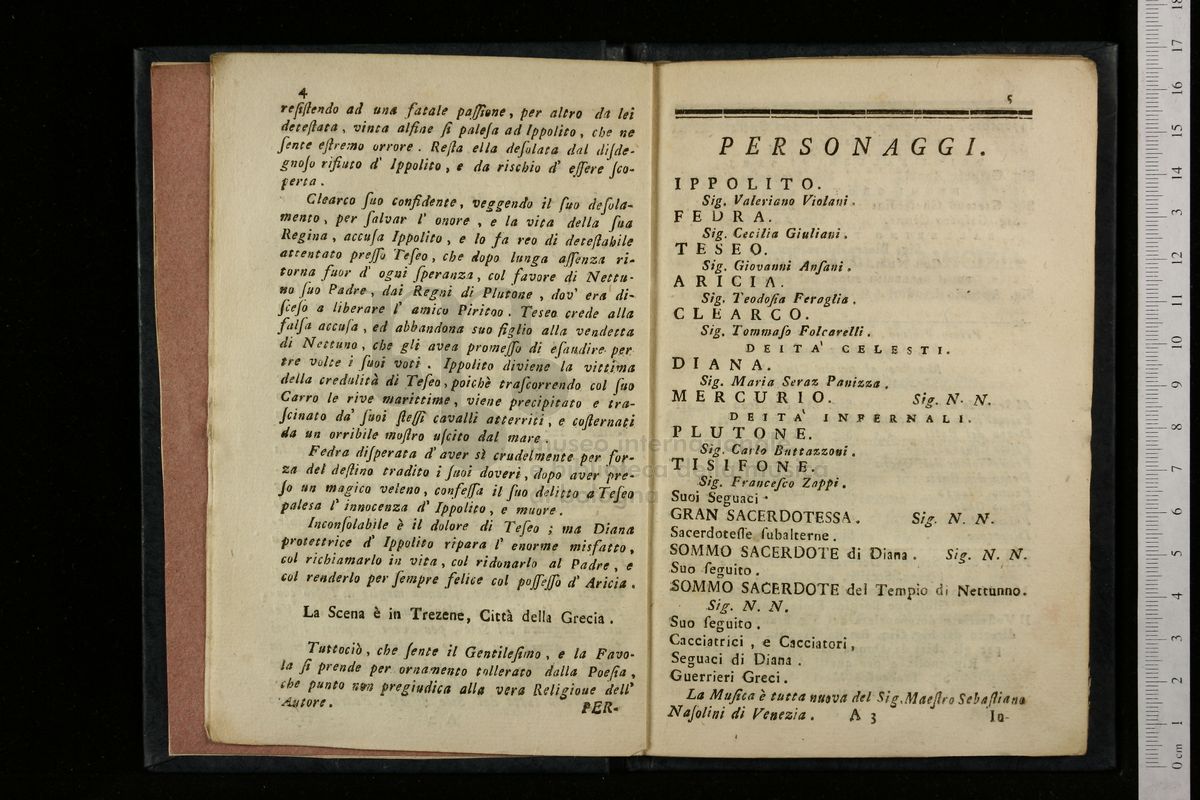 4
reſiſtendo ad una fatale paſſione, per altro da lei
deteſtata, vinta alfine ſi paleſa ad Ippolito, che ne
ſente eſtremo orrore. Reſta ella deſolata dal diſde-
gnoſo rifiuto d' Ippolito, e da riſchio d' eſſere ſco-
perta.
Clearco ſuo confidente, veggendo il ſuo deſola-
mento, per ſalvar l' onore, e la vita della ſua
Regina, accuſa Ippolito, e lo fa reo di deteſtabile
attentato preſſo Teſeo, che dopo lunga aſſenza ri-
torna fuor d' ogni ſperanza, col favore di Nettu-
no ſuo Padre, dai Regni di Plutone, dov' era di-
ſceſo a liberare l' amico Piritoo. Teseo crede alla
falſa accuſa, ed abbandona suo figlio alla vendetta
di Nettuno, che gli avea promeſſo di eſaudire per
tre volte i ſuoi voti. Ippolito diviene la vittima
della credulità di Teſeo, poichè traſcorrendo col ſuo
Carro le rive marittime, viene precipitato e tra-
ſcinato da' ſuoi ſteſſi cavalli atterriti, e coſternati
da un orribile moſtro uſcito dal mare.
Fedra diſperata d' aver sì crudelmente per for-
za del deſtino tradito i ſuoi doveri, dopo aver pre-
ſo un magico veleno, confeſſa il ſuo delitto a Teſeo
palesa l' innocenza d' Ippolito, e muore.
Inconſolabile è il dolore di Teſeo; ma Diana
protettrice d' Ippolito ripara l' enorme misfatto,
col richiamarlo in vita, col ridonarlo al Padre, e
col renderlo per ſempre felice col poſſeſſo d' Aricia.
La Scena è in Trezene, Città della Grecia.
Tuttociò, che ſente il Gentileſimo, e la Favo-
la ſi prende per ornamento tollerato dalla Poeſia,
che punto non pregiudica alla vera Religioue dell'
Autore.
PER-
5
PERSONAGGI.
IPPOLITO.
Sig. Valeriano Violani.
FEDRA.
Sig. Cecilia Giuliani.
TESEO.
Sig. Giovanni Anſani.
ARICIA.
Sig. Teodoſia Feraglia.
CLEARCO.
Sig. Tommaſo Folcarelli.
DEITA' CELESTI.
DIANA.
Sig. Maria Seraz Panizza.
MERCURIO. Sig. N. N.
DEITA' INFERNALI.
PLUTONE.
Sig. Carlo Buttazzoni.
TISIFONE.
Sig. Franceſco Zappi.
Suoi Seguaci.
GRAN SACERDOTESSA. Sig. N. N.
Sacerdoteſſe ſubalterne.
SOMMO SACERDOTE di Diana. Sig. N. N.
Suo ſeguito.
SOMMO SACERDOTE del Tempio di Nettunno.
Sig. N. N.
Suo ſeguito.
Cacciatrici, e Cacciatori,
Seguaci di Diana.
Guerrieri Greci.
La Muſica è tutta nuova del Sig. Maeſtro Sebaſtiano
Naſolini di Venezia. A 3 In-
museo internazionale
e biblioteca della musica
di bologna
0 cm 1 2 3 4 5 6 7 8 9 10 11 12 13 14 15 16 17 18